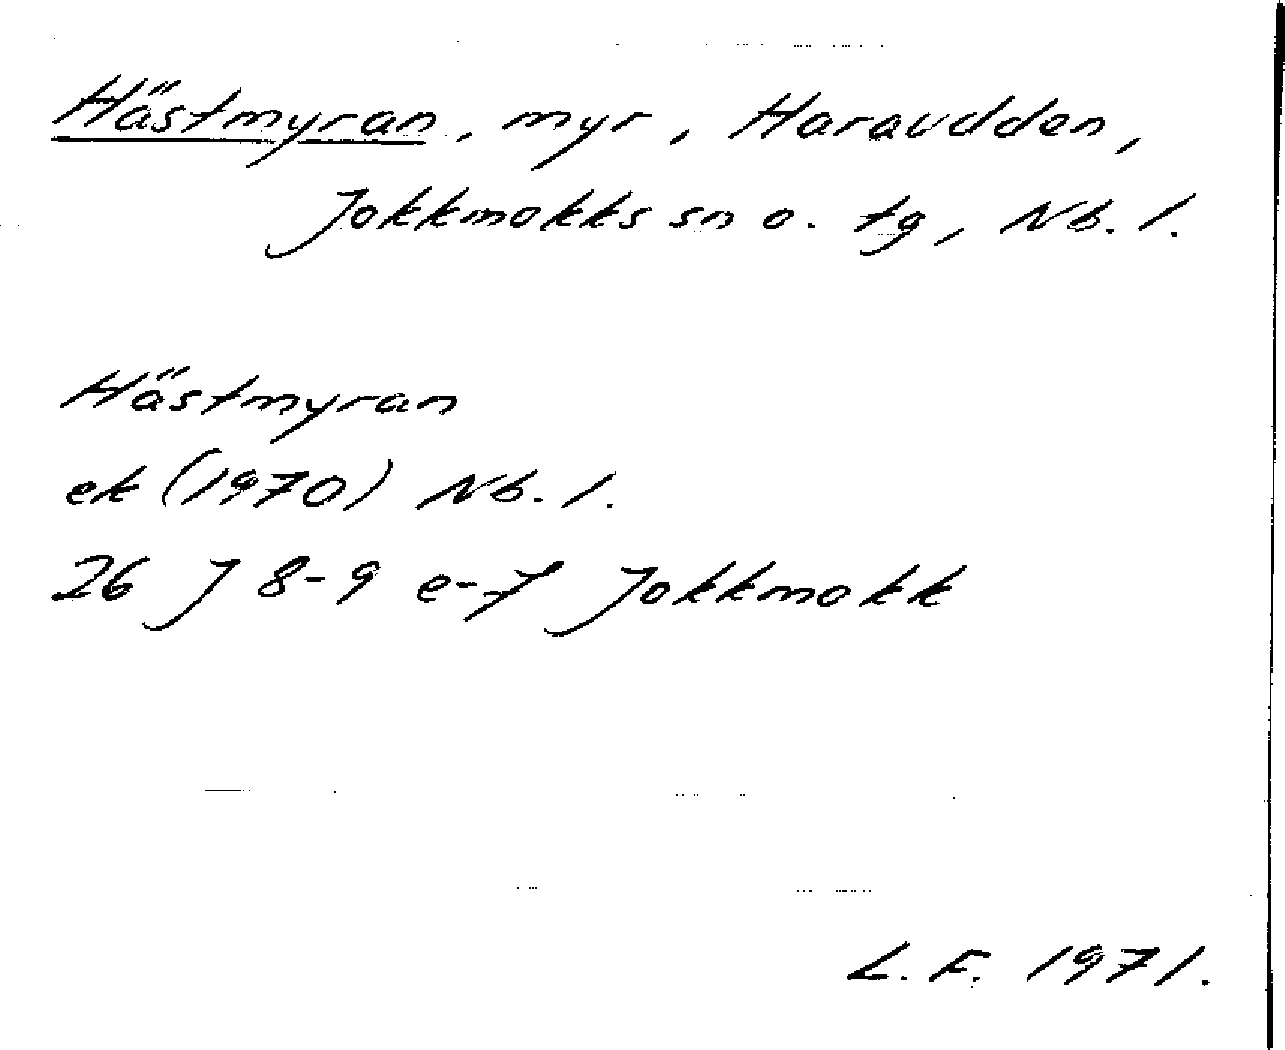 Hästmyran, myr, Haraudden,
Jokkmokks sn o. tg, Nb. l.
Hästmyran
ek (1970) Nb. l.
26 J 8-9 e-f Jokkmokk
L. F. 1971.